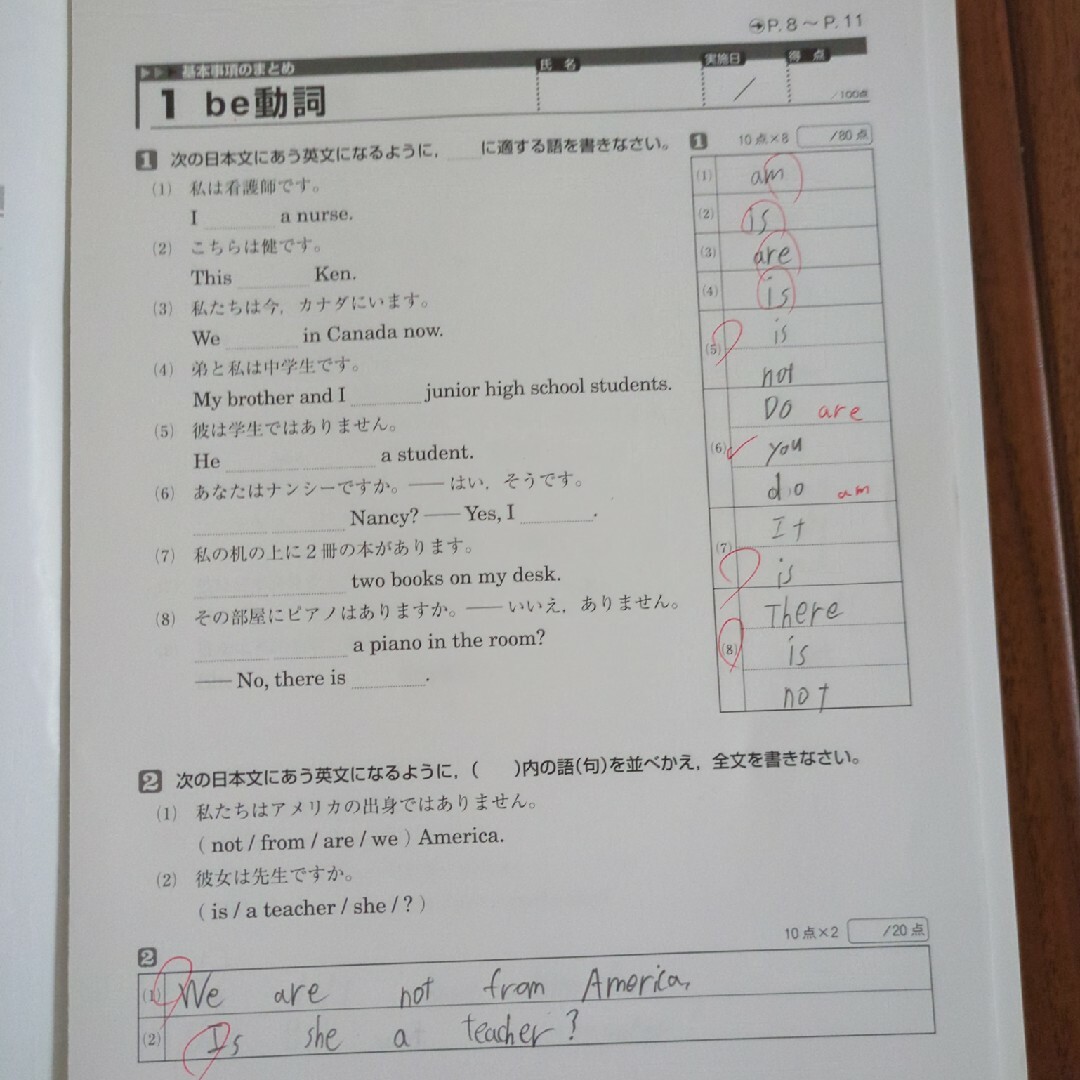 ➔P. 8 ～ P. 11
基本事項のまとめ
1 be動詞
氏 名
実施日
/
得 点
/100点
1 次の日本文にあう英文になるように，____に適する語を書きなさい。
(1) 私は看護師です。
I ______ a nurse.
(2) こちらは健です。
This ______ Ken.
(3) 私たちは今，カナダにいます。
We ______ in Canada now.
(4) 弟と私は中学生です。
My brother and I ______ junior high school students.
(5) 彼は学生ではありません。
He ______ ______ a student.
(6) あなたはナンシーですか。── はい，そうです。
______ ______ Nancy? ── Yes, I ______.
(7) 私の机の上に２冊の本があります。
______ ______ two books on my desk.
(8) その部屋にピアノはありますか。── いいえ，ありません。
______ ______ a piano in the room?
── No, there is ______.
1 10点×8 /80点
(1) am
(2) is
(3) are
(4) is
(5) is
not
(6) Do are
you
do am
(7) It
is
(8) There
is
not
2 次の日本文にあう英文になるように，(　　)内の語(句)を並べかえ，全文を書きなさい。
(1) 私たちはアメリカの出身ではありません。
( not / from / are / we ) America.
(2) 彼女は先生ですか。
( is / a teacher / she / ? )
10点×2 /20点
2
(1) We are not from America,
(2) Is she a teacher?